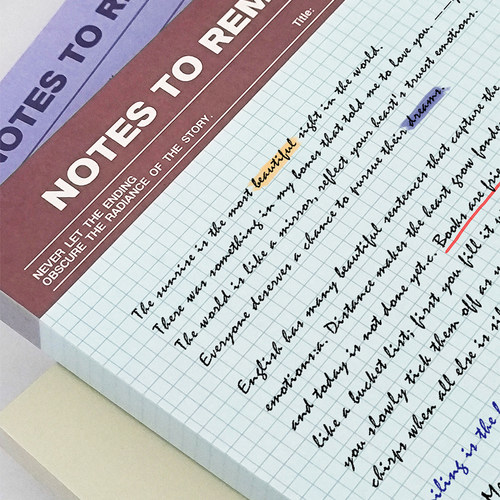 OTES TO R
NOTES TO REM
Title:
NEVER LET THE ENDING
OBSCURE THE RADIANCE OF THE STORY.
The sunrise is the most beautiful sight in the world.
There was something in my bones that told me to love you.
The world is like a mirror, reflect your heart's truest emotions.
Everyone deserves a chance to pursue their dreams.
English has many beautiful sentences that capture the
emotions:a. Distance makes the heart grow fond
and today is not done yet.c. Books are frie
like a bucket list; first you fill it
you slowly tick them off as
chirps when all else is sil
ling is the b